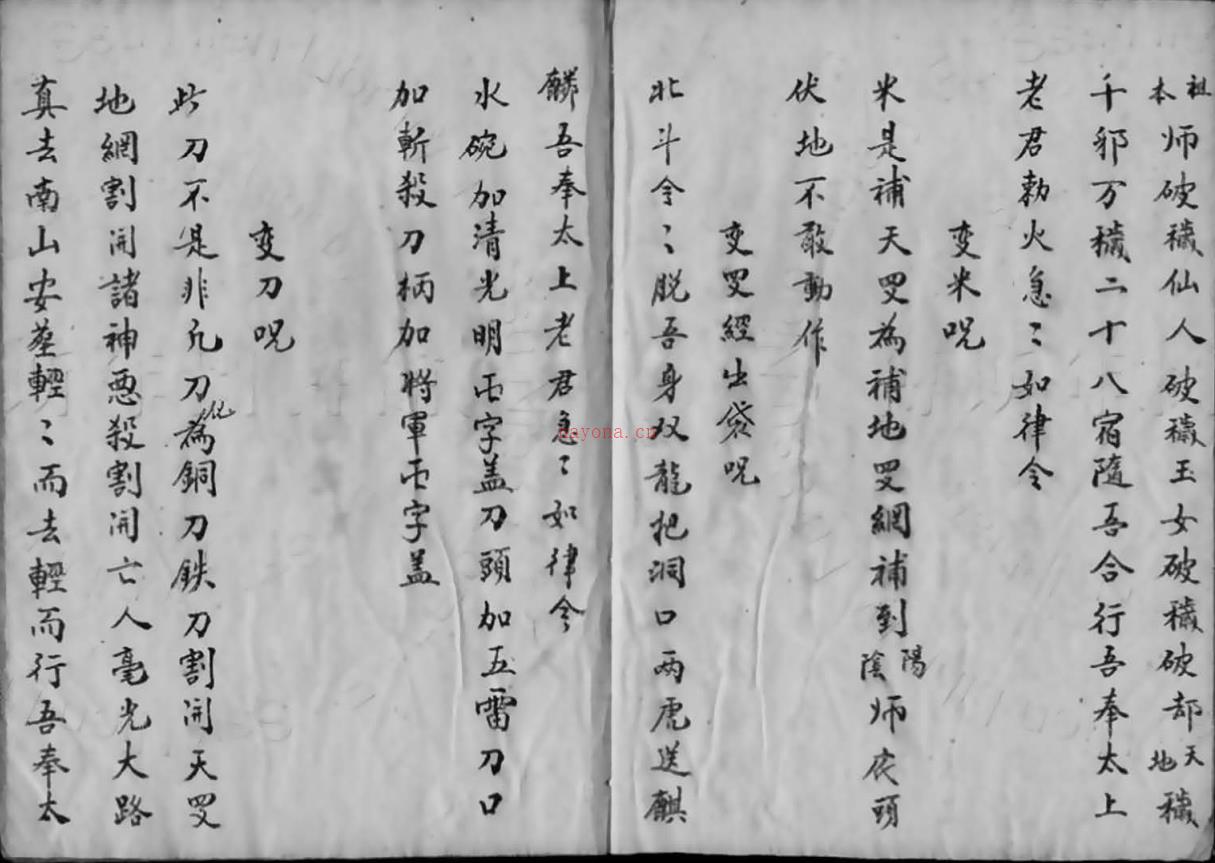 祖本师破穢仙人破穢玉女破穢破却天地穢
千邪万穢二十八宿隨吾合行吾奉太上
老君勅火急〻如律令
变米呪
米是補天罗為補地罗網補到陽陰师衣頭
伏地不敢動作
变罗經出袋呪
北斗令〻脱吾身双龍把洞口两虎送麒
麟吾奉太上老君急〻如律令
水碗加清光明正字盖刀頭加五雷刀口
加斬殺刀柄加將軍正字盖
变刀呪
此刀不是非凡刀化為銅刀鉄刀割開天罗
地網割開諸神惡殺割開亡人毫光大路
真去南山安墓輕〻而去輕而行吾奉太
nayona.cn